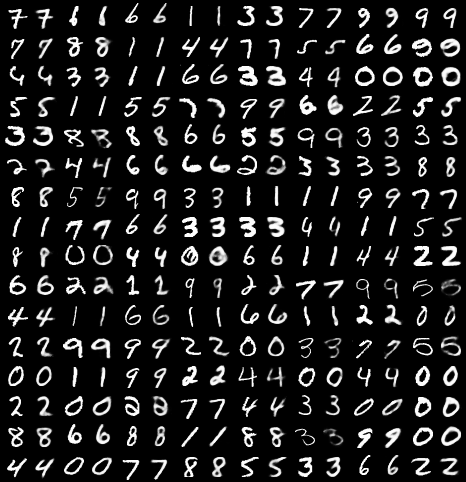 7 7 6 6 6 6 1 1 3 3 7 7 9 9 9 9
7 7 8 8 1 1 4 4 7 7 5 5 6 6 9 9
4 4 3 3 1 1 6 6 3 3 4 4 0 0 0 0
5 5 1 1 5 5 7 7 9 9 6 6 2 2 5 5
3 3 8 8 8 8 6 6 5 5 9 9 3 3 3 3
2 2 4 4 6 6 6 6 2 2 3 3 3 3 8 8
8 8 5 5 9 9 3 3 1 1 1 1 9 9 7 7
1 1 7 7 6 6 3 3 3 3 4 4 1 1 5 5
8 8 0 0 4 4 0 0 6 6 1 1 4 4 2 2
6 6 2 2 1 1 9 9 2 2 7 7 9 9 5 5
4 4 1 1 6 6 1 1 6 6 1 1 2 2 0 0
2 2 9 9 9 9 2 2 0 0 3 3 7 7 5 5
0 0 1 1 9 9 2 2 4 4 0 0 4 4 0 0
2 2 0 0 2 2 7 7 4 4 3 3 0 0 0 0
8 8 6 6 8 8 1 1 8 8 3 3 9 9 0 0
4 4 0 0 7 7 8 8 5 5 3 3 6 6 2 2